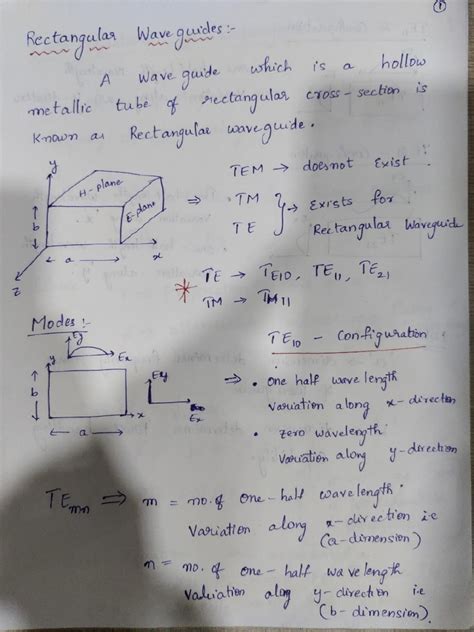 1
Rectangular Wave guides :-
A wave guide which is a hollow
metallic tube of rectangular cross-section is
known as Rectangular waveguide.
y
H-plane
E-plane
b
a
x
z
⇒
TEM → doesnot Exist
TM
TE
} → Exists for
Rectangular Waveguide
TE → TE10, TE11, TE21
TM → TM11
Modes :-
TE10 - Configuration
Ey
Ex
y
b
x
a
Ey
Ex
⇒ • one half wave length
variation along x-direction
• zero wavelength
variation along y-direction
TEmn ⇒ m = no. of one-half wavelength
variation along x-direction i.e
(a-dimension)
n = no. of one-half wavelength
variation along y-direction i.e
(b-dimension).